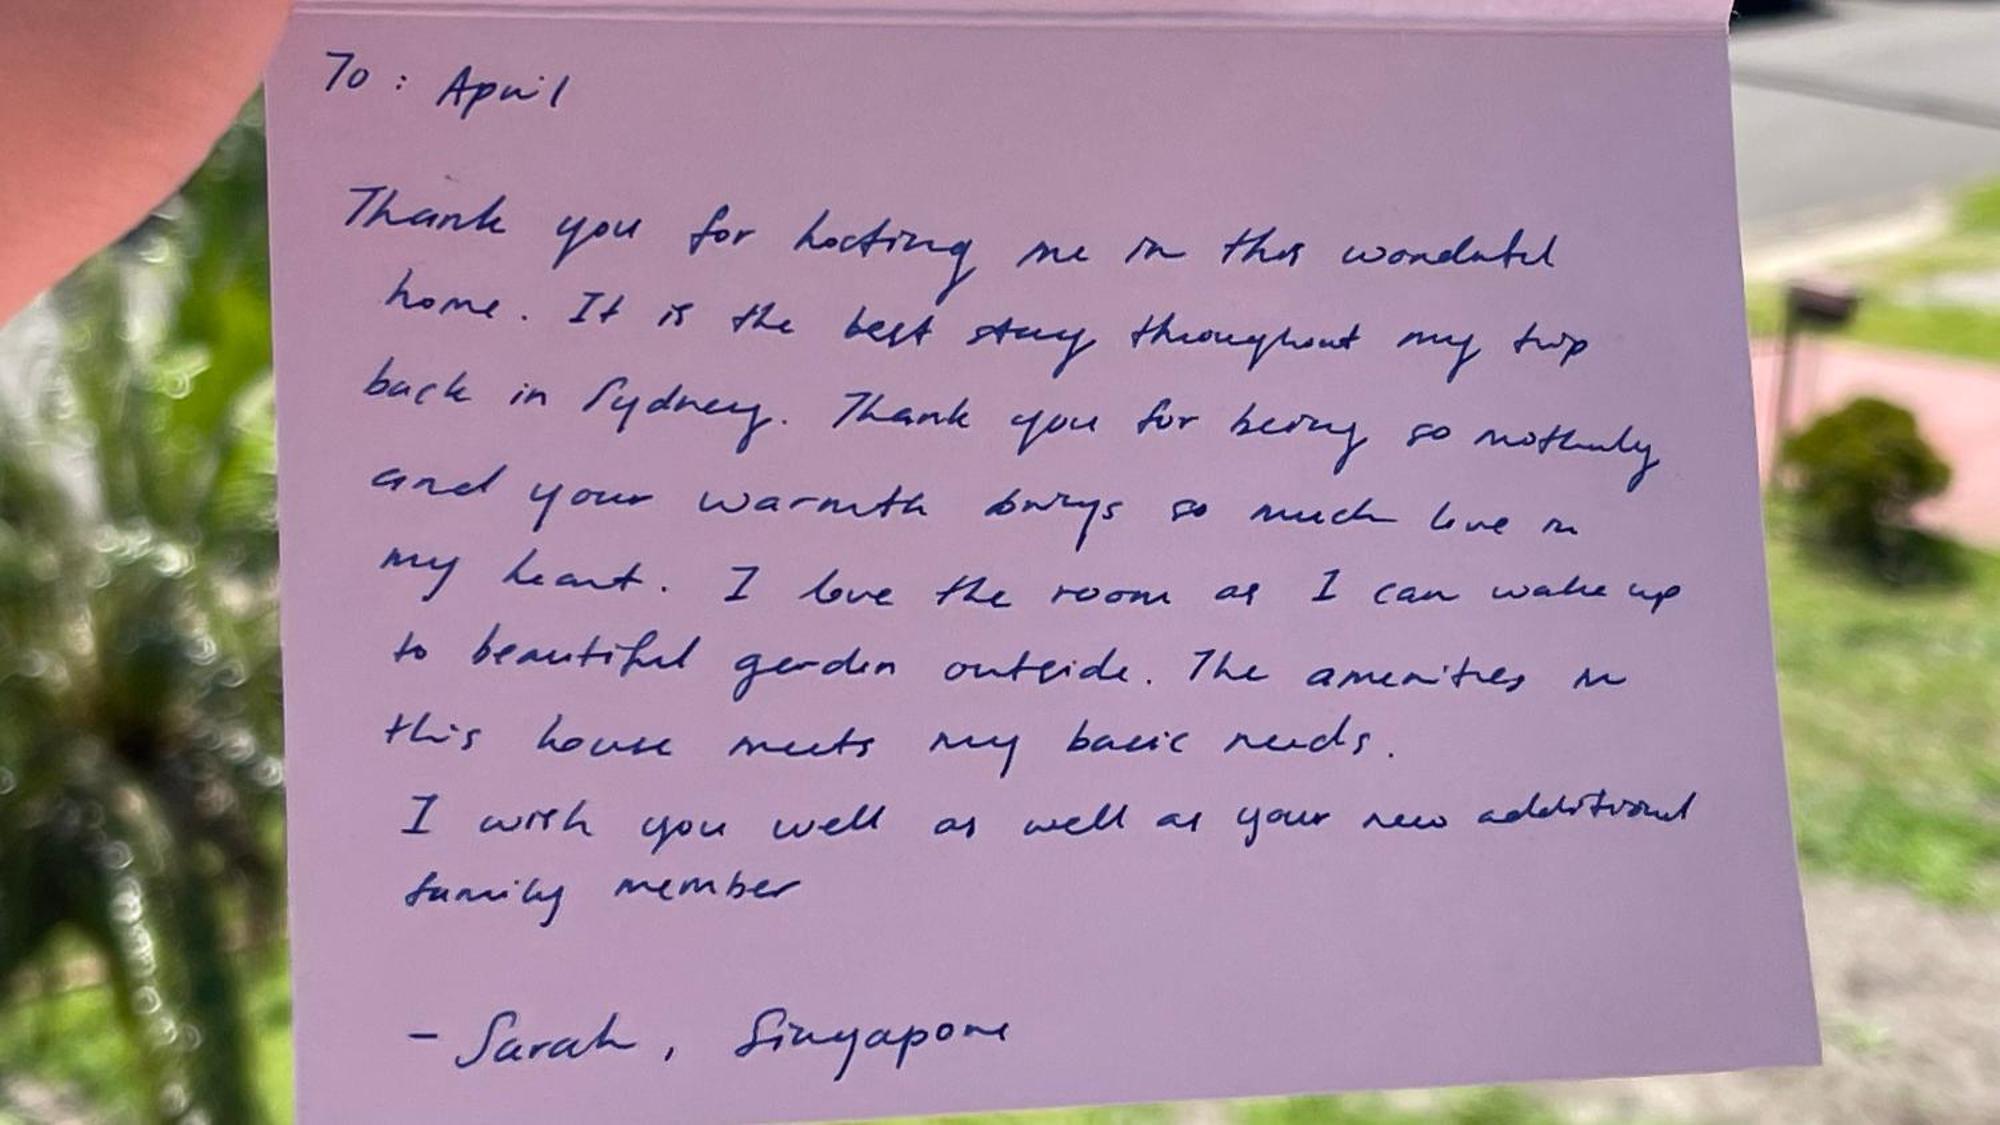 To : April
Thank you for hosting me in this wonderful
home. It is the best stay throughout my trip
back in Sydney. Thank you for being so motherly
and your warmth brings so much love in
my heart. I love the room as I can wake up
to beautiful garden outside. The amenities in
this house meets my basic needs.
I wish you well as well as your new additional
family member
- Sarah, Singapore